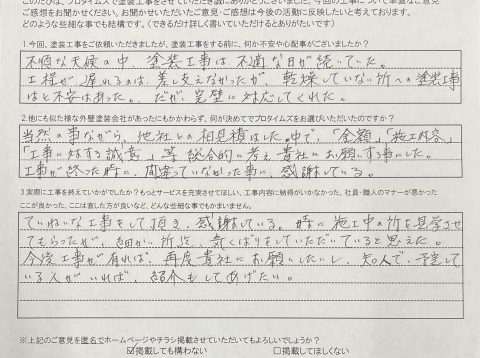 このたびは、プロタイムズで塗装工事をさせていただき誠にありがとうございました。今回の工事について率直なご意
見ご感想をお聞かせください。お聞かせいただいたご意見・ご感想は今後の活動に反映したいと考えております。
どのような些細な事でも結構です。(できるだけ詳しく書いていただけるとありがたいです)
1.今回、塗装工事をご依頼いただきましたが、塗装工事をする前に、何か不安や心配事がございましたか?
不順な天候の中、塗装工事は不適な日が続いていた。
工程が遅れるのは、差し支えなかったが、乾燥していない所への塗装工事
はと不安はあった。だが、完璧に対応してくれた。
2.他にも似た様な外壁塗装会社があったにもかかわらず、何が決めてでプロタイムズをお選びいただいたのですか?
当然の事ながら、他社との相見積はした。中で、「金額」「施工内容」
「工事に対する誠意」等 総合的に考え貴社にお願いする事にした。
工事が終った時に、間違っていなかった事に、感謝している。
3.実際に工事を終えていかがでしたか?もっとサービスを充実させてほしい、工事内容に納得がいかなかった、社員・職人のマナーが悪かった
ここが良かった、ここは直した方が良いなど、どんな些細な事でもかまいません。
ていねいな工事をして頂き、感謝している。時に施工中の所を見学させ
てもらったが、細かい所迄、気くばりをしていただいていると思えた。
今後工事が有れば、再度貴社にお願いしたいし、知人で、予定して
いる人がいれば、紹介もしてあげたい。
※上記のご意見を匿名でホームページやチラシ掲載させていただいてもよろしいでしょうか?
☑掲載しても構わない □掲載してほしくない